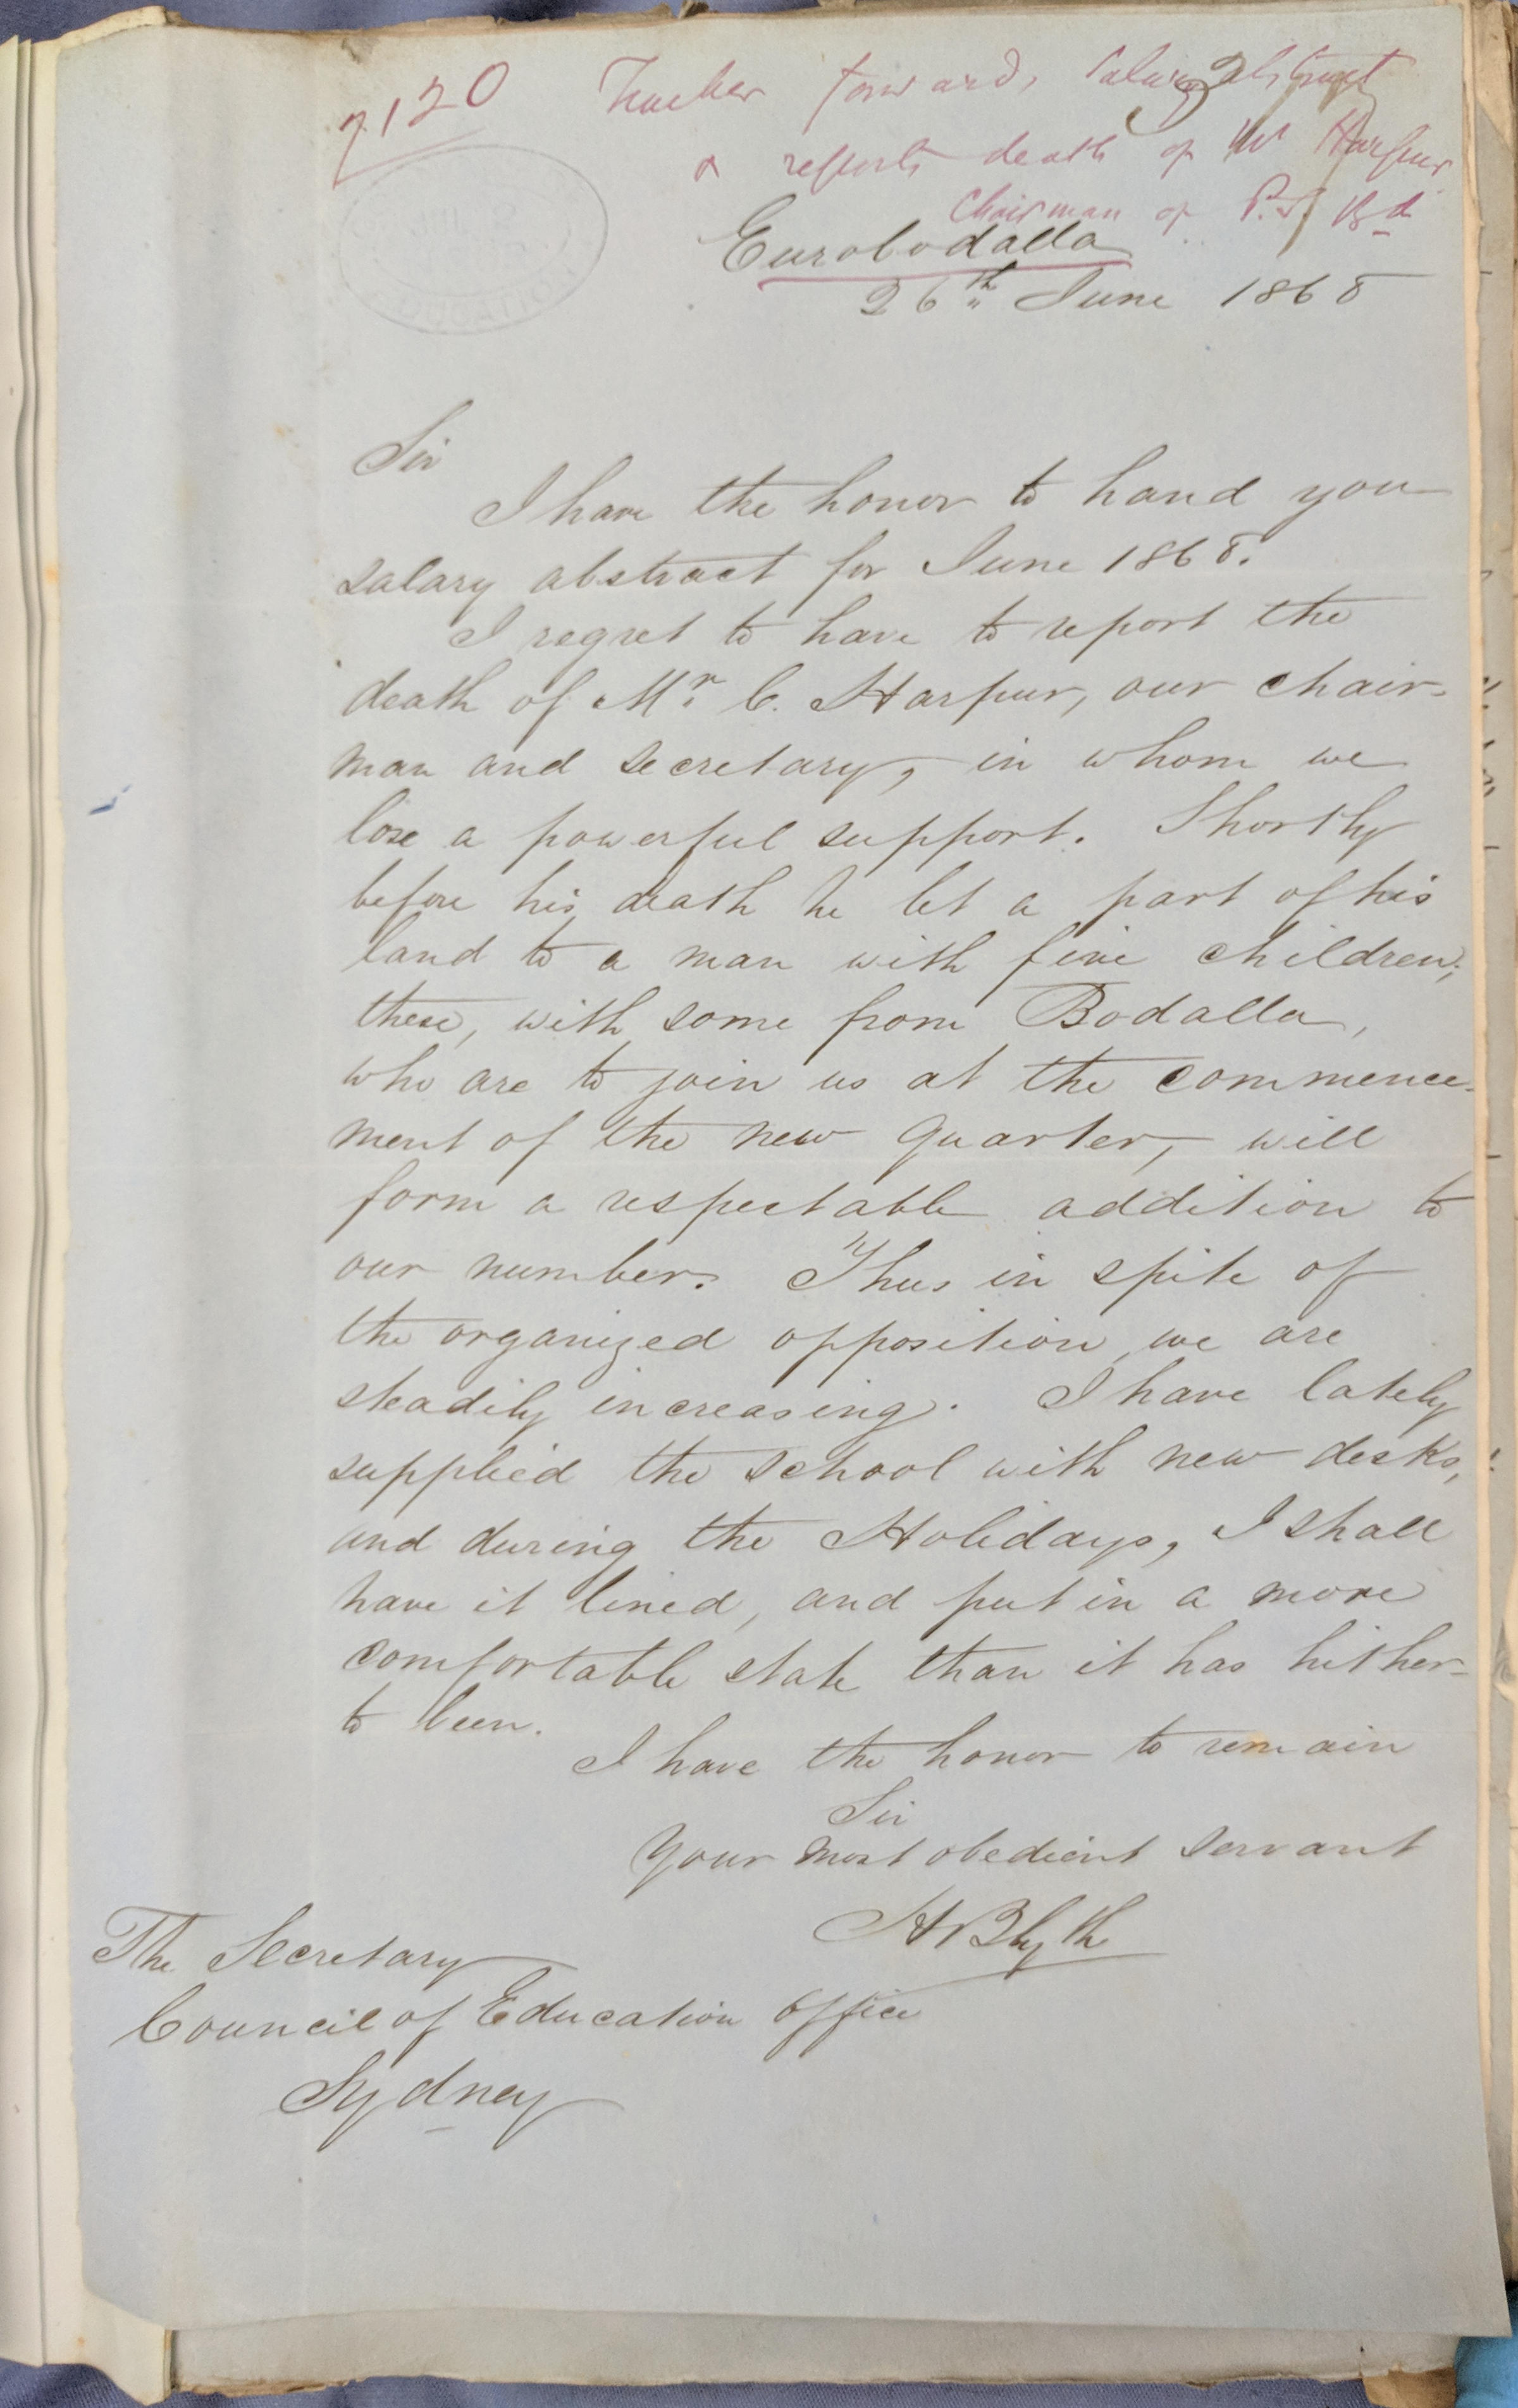 7120 Teacher forwards salary abstract
& reports death of Mr Harpur
Chairman of P.S. Bd
Eurobodalla
26th June 1868
Sir
I have the honor to hand you
salary abstract for June 1868.
I regret to have to report the
death of Mr. C. Harpur, our chair-
man and secretary, in whom we
lose a powerful support. Shortly
before his death he let a part of his
land to a man with five children;
these, with some from Bodalla,
who are to join us at the commence-
ment of the new quarter, will
form a respectable addition to
our number. Thus in spite of
the organized opposition, we are
steadily increasing. I have lately
supplied the school with new desks,
and during the Holidays, I shall
have it lined, and put in a more
comfortable state than it has hither-
to been.
I have the honor to remain
Sir
Your most obedient servant
H Blyth
The Secretary
Council of Education Office
Sydney